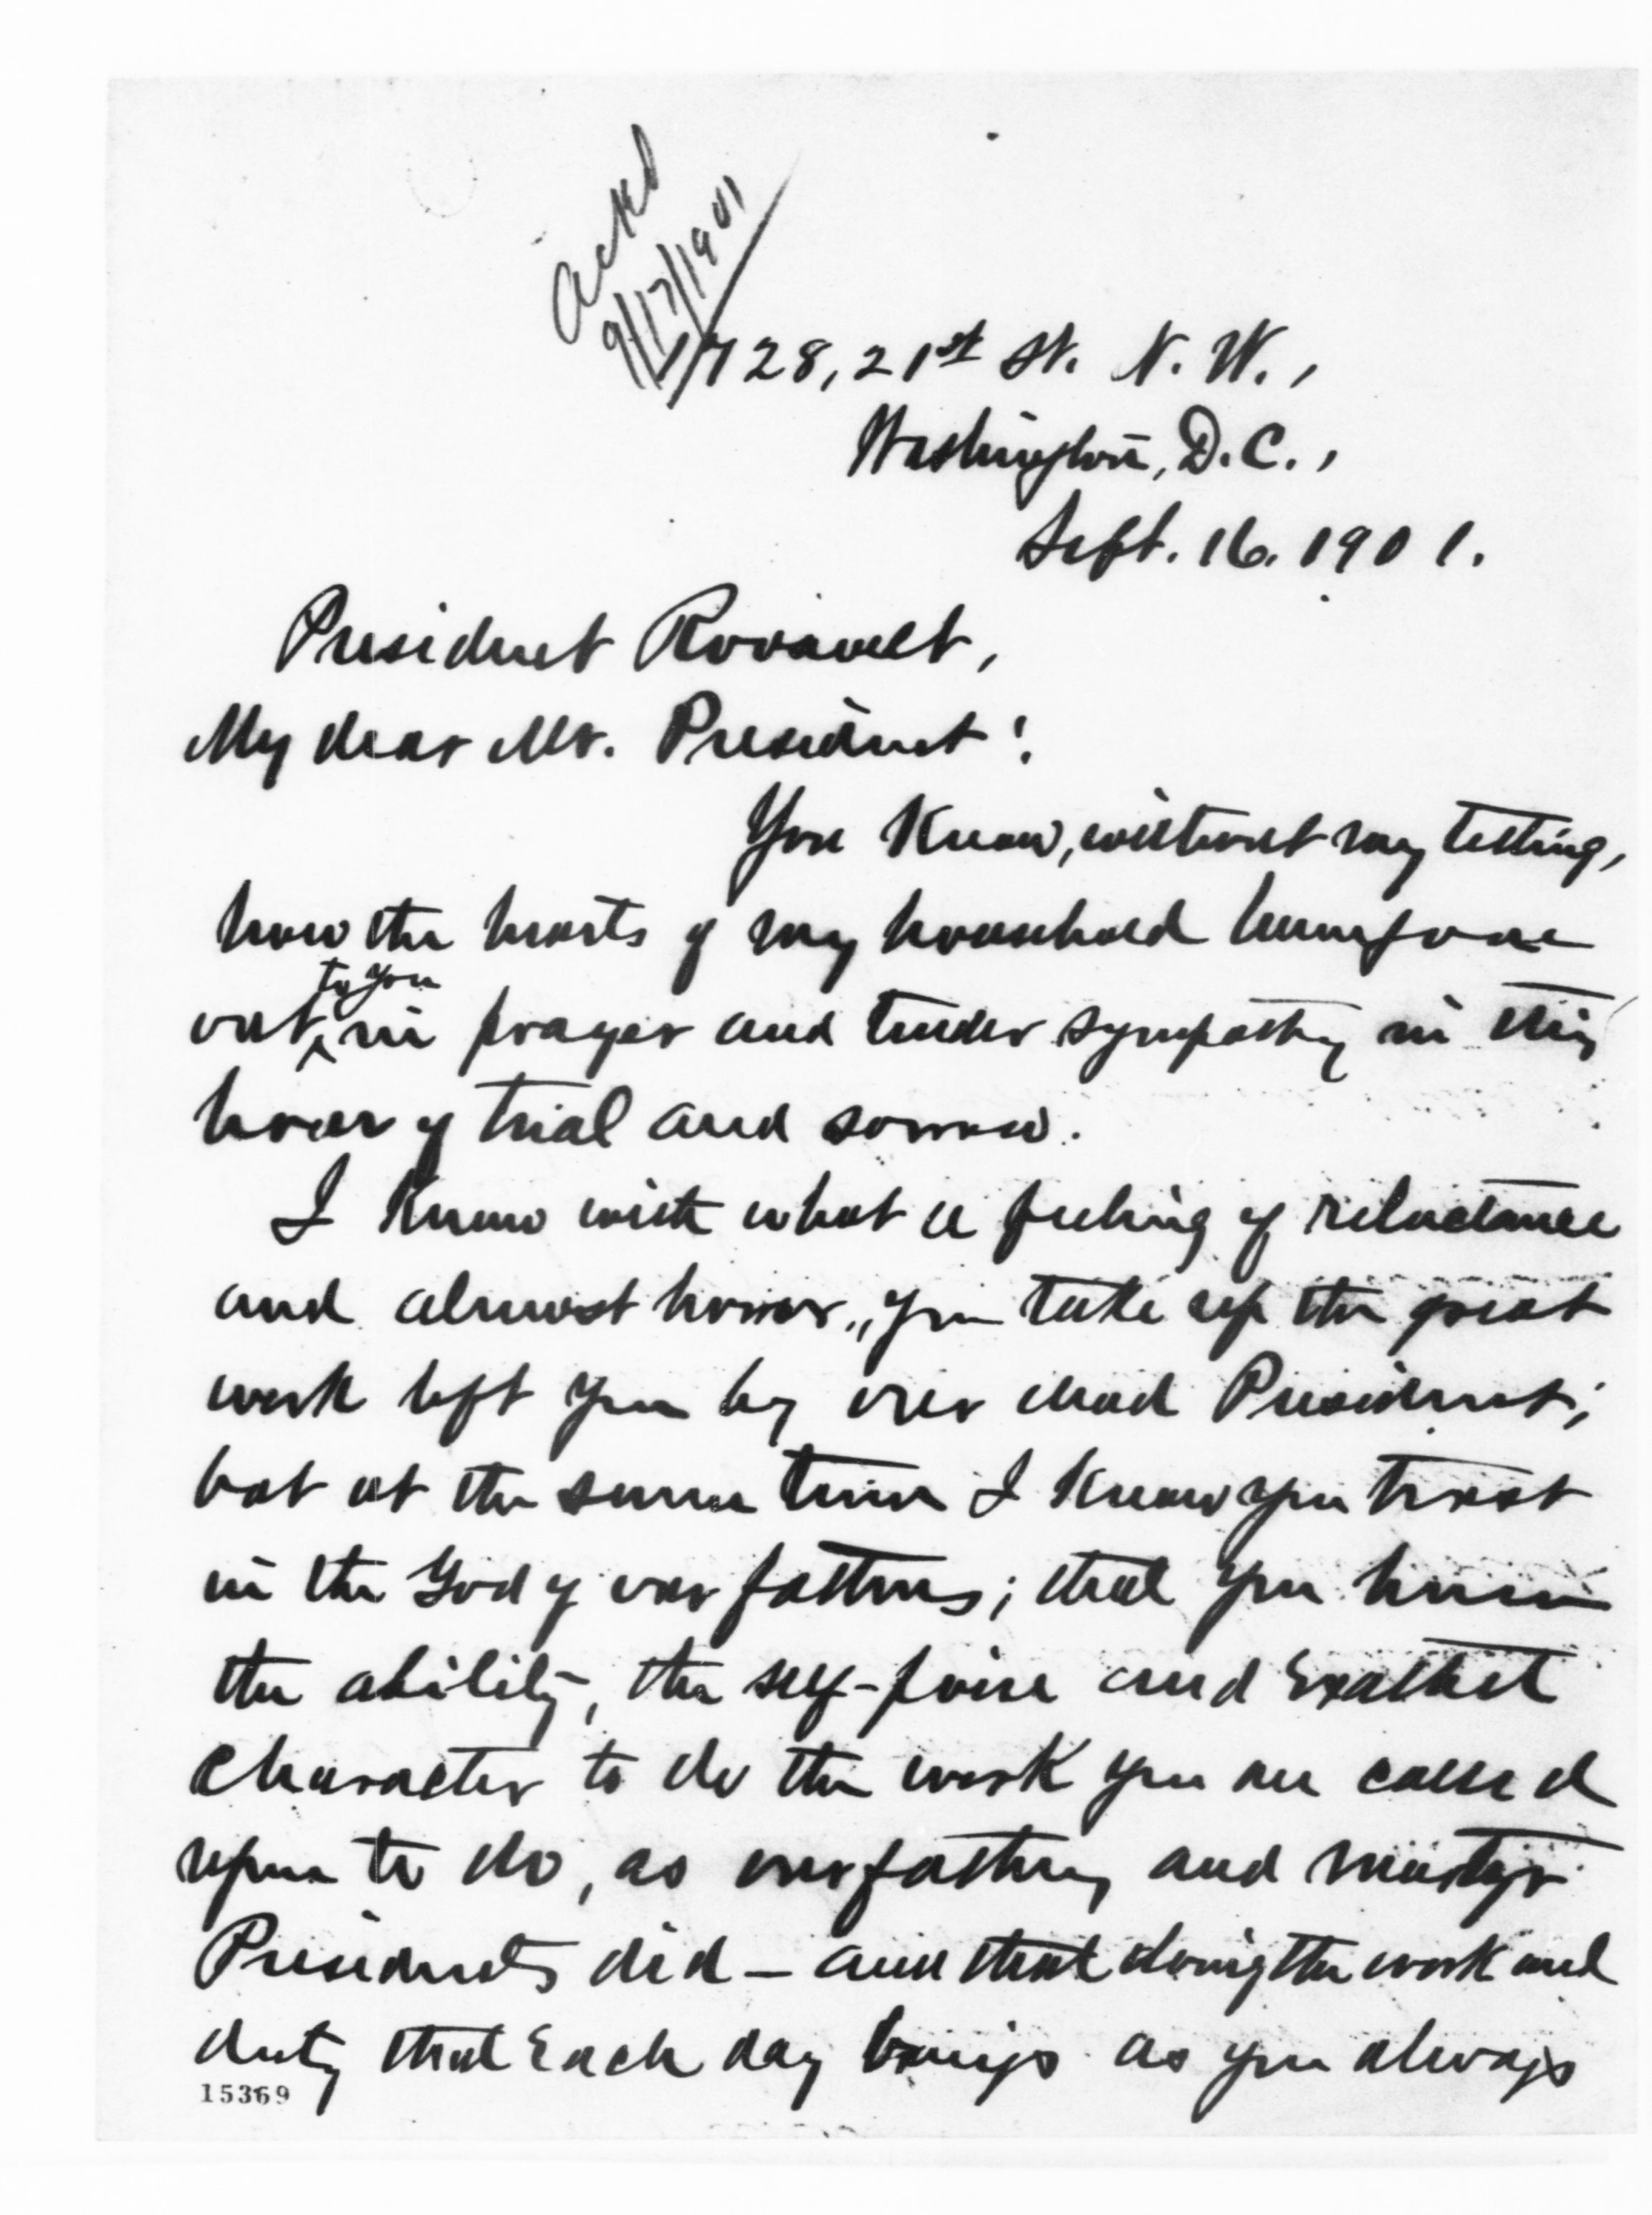 Ackd
9/17/1901
1728, 21st St. N. W.,
Washington, D.C.,
Sept. 16. 1901.
President Roosevelt,
My dear Mr. President:
You know, without my telling,
how the hearts of my household have gone
to you
out in prayer and tender sympathy in this
hour of trial and sorrow.
I know with what a feeling of reluctance
and almost horror, you take up the great
work left you by our dead President;
but at the same time I know you trust
in the God of our fathers; that you have
the ability, the self-poise and exalted
character to do the work you are called
upon to do, as our fathers and martyr
Presidents did - and that doing the work and
duty that each day brings as you always
15369